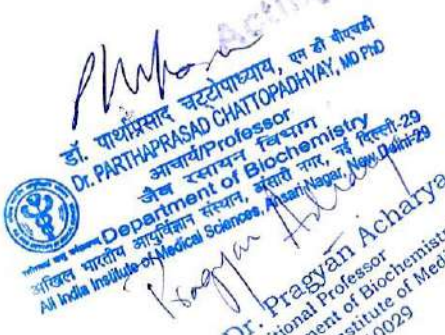 Acting
डॉ. पार्थाप्रसाद चट्टोपाध्याय, एम डी पीएचडी
Dr. PARTHAPRASAD CHATTOPADHYAY, MD PhD
आचार्य/Professor
जैव रसायन विभाग
Department of Biochemistry
अखिल भारतीय आयुर्विज्ञान संस्थान, अंसारी नगर, नई दिल्ली-29
All India Institute of Medical Sciences, Ansari Nagar, New Delhi-29
Pragyan Acharya
Dr. Pragyan Acharya
itional Professor
ment of Biochemistry
stitute of Medi
0029